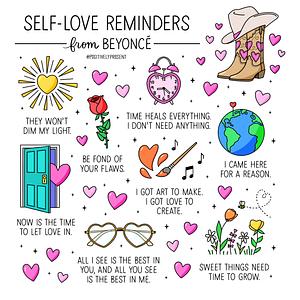 SELF-LOVE REMINDERS
from BEYONCÉ
@POSITIVELYPRESENT
THEY WON'T
DIM MY LIGHT.
BE FOND OF
YOUR FLAWS.
TIME HEALS EVERYTHING.
I DON'T NEED ANYTHING.
I CAME HERE
FOR A REASON.
NOW IS THE TIME
TO LET LOVE IN.
I GOT ART TO MAKE.
I GOT LOVE TO
CREATE.
ALL I SEE IS THE BEST IN
YOU, AND ALL YOU SEE
IS THE BEST IN ME.
SWEET THINGS NEED
TIME TO GROW.